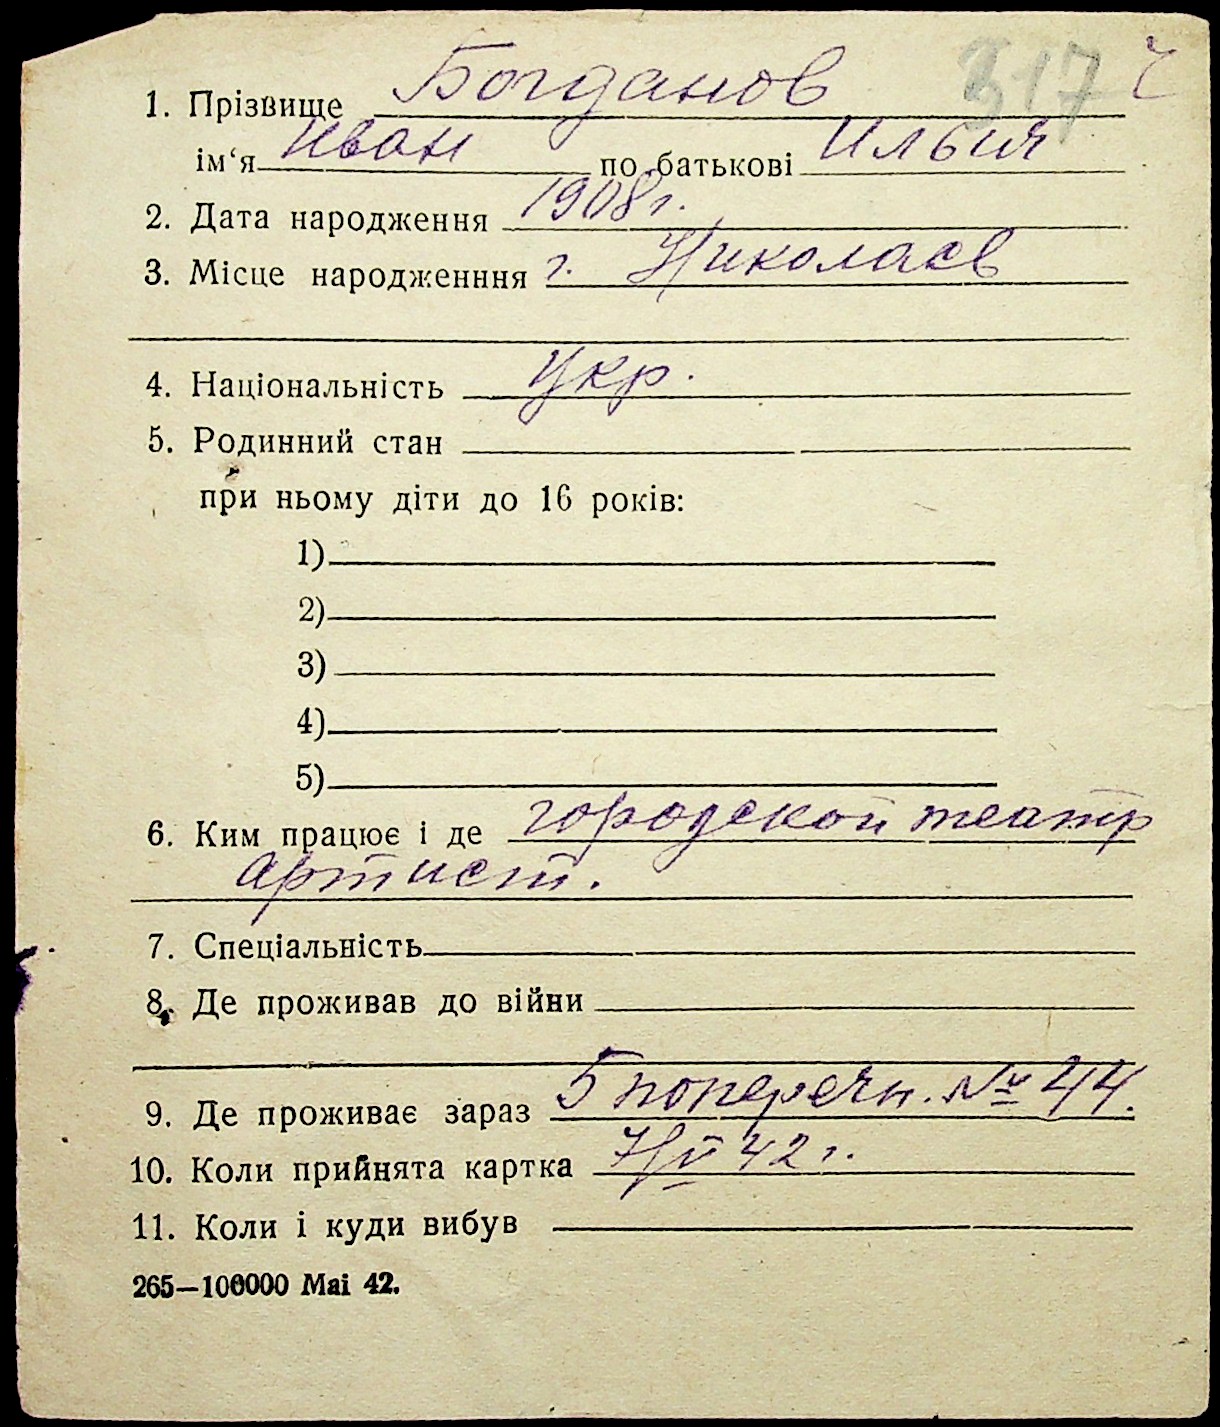 317 ч
1. Прізвище Богданов
ім‘я Иван по батькові Илья
2. Дата народження 1908 г.
3. Місце народженння г. Николаєв
4. Національність Укр.
5. Родинний стан
при ньому діти до 16 років:
1)
2)
3)
4)
5)
6. Ким працює і де городской театр
артист.
7. Спеціальність
8. Де проживав до війни
9. Де проживає зараз 5 поперечн. № 44.
10. Коли прийнята картка 7/VI 42 г.
11. Коли і куди вибув
265—100000 Mai 42.